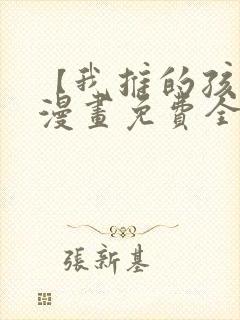 【我推的孩
漫畫免費全
張新基